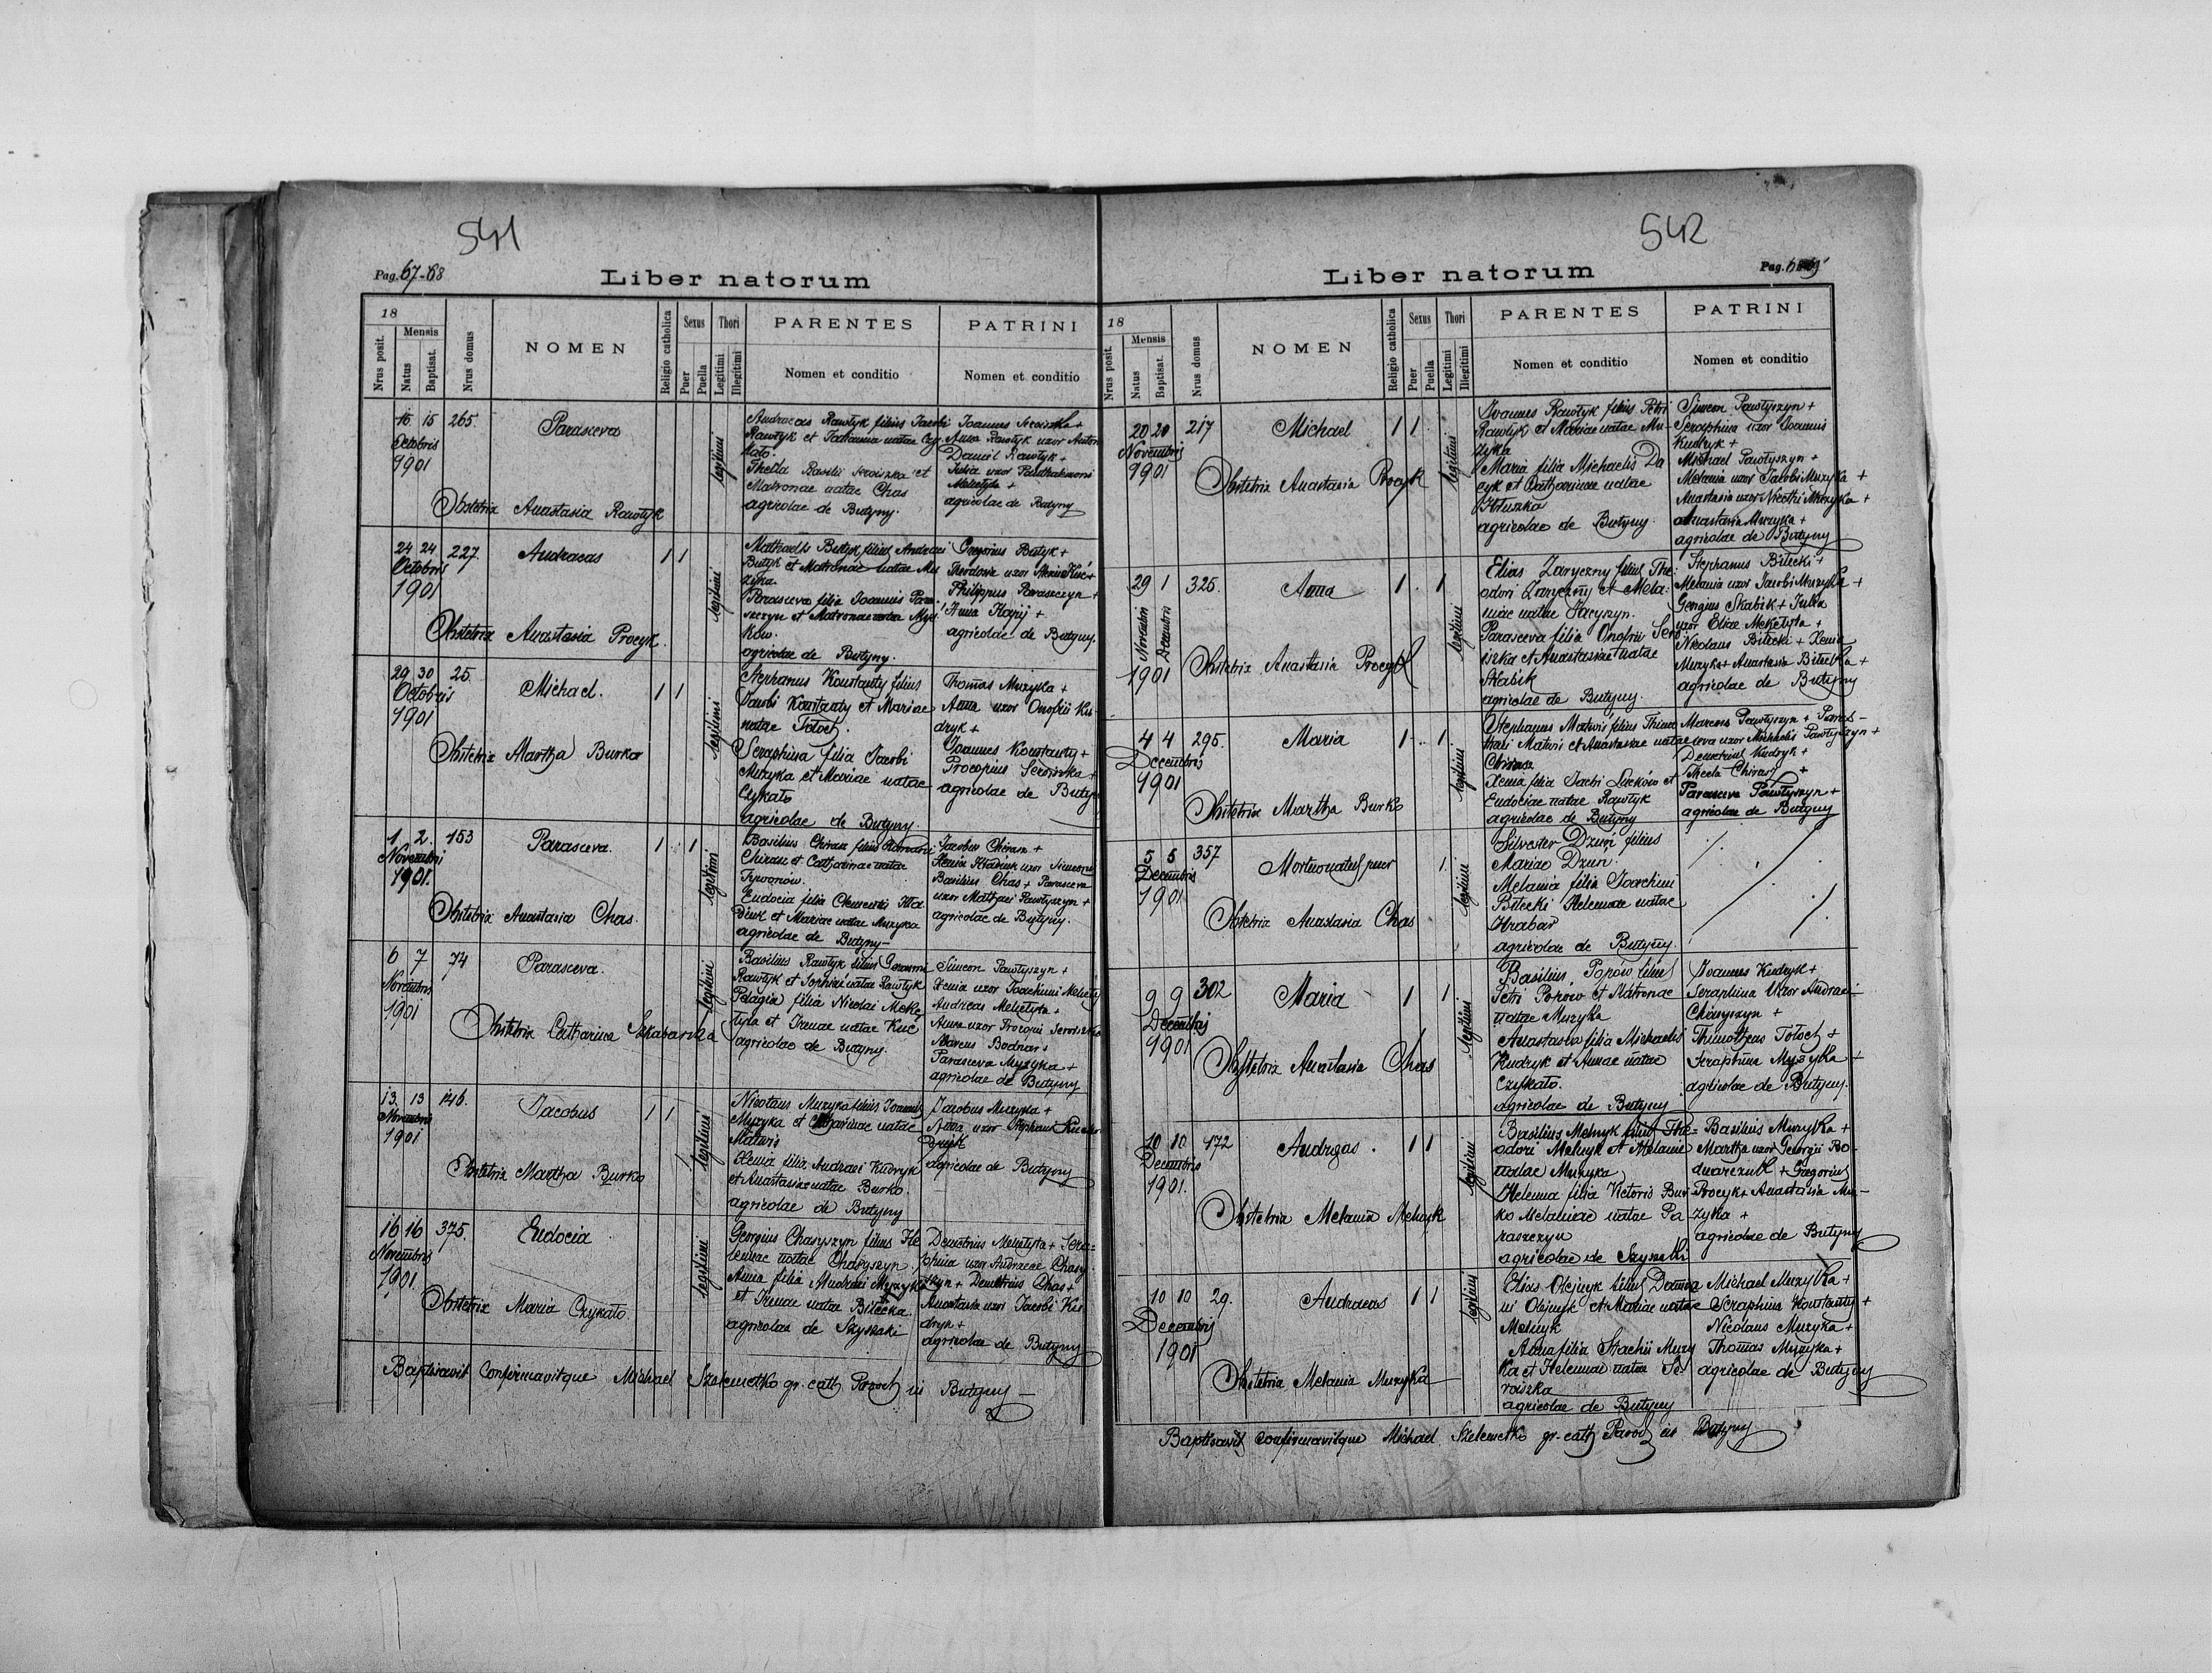 541
Pag. 67-68
Liber natorum
18
Nrus posit.
Mensis
Natus
Baptisat.
Nrus domus
NOMEN
Religio catholica
Sexus
Puer
Puella
Thori
Legitimi
Illegitimi
PARENTES
Nomen et conditio
PATRINI
Nomen et conditio
15 265.
Octobris
1901
Parasceva
legitimi
Andraeas Pawłyk filius Jacobi
Pawłyk et
Thecla Basilii et
Matronae natae Chas
agricolae de Butyny.
Joannes +
Anna Pawłyk uxor
Daniel Pawłyk +
Julia uxor
+
agricolae de Butyny
Obstetrix Anastasia Pawłyk
24 24 227.
Octobris
1901
Andraeas
1 1
legitimi
Butyk filius Andraei
Butyk et Matronae natae Mu
zyka.
Parasceva filia Joannis Para
szczyn et Matronae natae
ków.
agricolae de Butyny.
Gregorius Butyk +
Theodosia uxor
Philippus Paraszczyn +
Anna +
agricolae de Butyny.
Obstetrix Anastasia Procyk.
29 30 25.
Octobris
1901
Michael.
1 1
legitimi
Stephanus Konstanty filius
Jacobi Konstanty et Mariae
natae Tołoch.
Seraphina filia Jacobi
Muzyka et Mariae natae
Czykało
agricolae de Butyny
Thomas Muzyka +
Anna uxor Onofrii Ku
dryk +
Joannes Konstanty +
Procopius +
agricolae de Butyny
Obstetrix Martha Burko
1 2. 153
Novembri
1901.
Parasceva.
1 1
legitimi
Basilius Chirasz filius
Chirasz et Catharinae natae
Eudocia filia Clementii Hła
diuk et Mariae natae Muzyka
agricolae de Butyny
Jacobus Chirasz +
Xenia Hładiuk uxor Simeonis
Basilius Chas + Parasceva
uxor Mathaei Pawłyszyn +
agricolae de Butyny.
Obstetrix Anastasia Chas.
6 7 74
Novembris
1901
Parasceva.
legitimi
Basilius Pawłyk filius
Pawłyk et Sophiae natae Pawłyk
Pelagia filia Nicolai Mełe
tyła et Irenae natae Kuć
agricolae de Butyny.
Simeon Pawłyszyn +
Xenia uxor Joachimi
Andreas Mełetyła +
Anna uxor Procopii
Marcus Bodnar +
Parasceva Muzyka +
agricolae de Butyny
Obstetrix Catharina
13. 13 146.
Novembris
1901
Jacobus
1 1
legitimi
Nicolaus Muzyka filius Joannis
Muzyka et Catharinae natae
Matwis
Xenia filia Andraei Kudryk
et Anastasiae natae Burko.
agricolae de Butyny
Jacobus Muzyka +
Anna uxor Stephani
agricolae de Butyny
Obstetrix Martha Burko
16 16 375.
Novembris
1901.
Eudocia
legitimi
Georgius Chasyszyn filius He
lenae natae Chasyszyn.
Anna filia Andraei Muzyka
et Irenae natae Biłecka.
agricolae de Szyszaki
Demetrius Mełetyła + Sera=
phina uxor Andraeae Chasy
szyn + Demetrius Chas +
Anastasia uxor Jacobi Ku
dryk +
agricolae de Butyny
Obstetrix Maria Czykało
Baptisavit Confirmavitque Michael gr. cath Paroch in Butyny
542
Liber natorum
Pag.
18
Nrus posit.
Mensis
Natus
Baptisat.
Nrus domus
NOMEN
Religio catholica
Sexus
Puer
Puella
Thori
Legitimi
Illegitimi
PARENTES
Nomen et conditio
PATRINI
Nomen et conditio
20 20 217
Novembris
1901
Michael
1 1
legitimi
Joannes Pawłyk filius Petri
Pawłyk et Mariae natae Mu-
zyka
Maria filia Michaelis Da
cyk et Catharinae natae
agricolae de Butyny.
Simeon Pawłyszyn +
Seraphina uxor Joannis
Kudryk +
Michael Pawłyszyn +
Melania uxor Jacobi Muzyka +
Anastasia uxor Muzyka +
Anastasia Muzyka +
agricolae de Butyny
Obstetrix Anastasia Procyk
29 1 325.
Novembri
Decembri
1901
Anna
1 1
legitimi
Elias Zaryczny filius The=
odori Zaryczny et Mela=
niae natae Jacyszyn.
Parasceva filia Onofrii
et Anastasiae natae
Skabik
agricolae de Butyny.
Stephanus Biłecki +
Melania uxor Jacobi Muzyka +
Georgius Skabik + Julia
uxor Eliae Mełetyła +
Nicolaus Biłecki + Xenia
Muzyka + Anastasia Biłecka +
agricolae de Butyny
Obstetrix Anastasia Procyk
4 4 295.
Decembris
1901
Maria
1 1
legitimi
Stephanus Matwis filius
Matwis et Anastasiae natae
Chirasz
Xenia filia Jacobi et
Eudociae natae Pawłyk
agricolae de Butyny
Marcus Pawłyszyn + Paras-
ceva uxor Michaelis Pawłyszyn +
Demetrius Kudryk +
Thecla Chirasz +
Parasceva Pawłyszyn +
agricolae de Butyny
Obstetrix Martha Burko
5 5 357
Decembris
1901
Mortuonatus puer
1.
legitimi
Silvester Dzuń filius
Mariae Dzuń.
Melania filia Joachimi
Biłecki Helenae natae
Hrabar
agricolae de Butyny.
Obstetrix Anastasia Chas
9 9 302
Decembris
1901
Maria
1 1
legitimi
Basilius Popów filius
Petri Popów et Matronae
natae Muzyka
Anastasia filia Michaelis
Kudryk et Annae natae
Czykało.
agricolae de Butyny
Joannes Kudryk +
Seraphina Uxor Andraei
Chasyszyn +
Thimotheus Tołoch +
Seraphina Muzyka +
agricolae de Butyny.
Obstetrix Anastasia Chas
10 10 172
Decembris
1901.
Andreas.
1 1
legitimi
Basilius Melnyk filius The=
odori Melnyk et Melanie
natae Muzyka.
Helenna filia Victoris Bur
ko Melaniae natae Pa
raszczyn
agricolae de Szyszaki
Basilius Muzyka +
Martha uxor Georgii Bo-
dnarczuk + Gregorius
Procyk + Anastasia Mu-
zyka +
agricolae de Butyny
Obstetrix Melania Melnyk
10 10 29.
Decembris
1901
Andraeas
1 1
legitimi
Elias Olejnyk filius Damia
ni Olejnyk et Mariae natae
Melnyk
Anna filia Stachii Muzy
ka et Helennae natae Se-
roiszka
agricolae de Butyny
Michael Muzyka +
Seraphina Konstanty +
Nicolaus Muzyka +
Thomas Muzyka +
agricolae de Butyny
Obstetrix Melania Muzyka
Baptisavit confirmavitque Michael gr. cath Paroch in Butyny